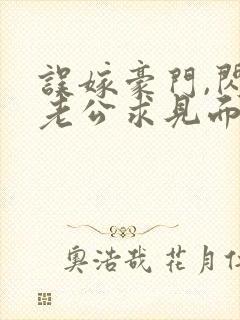 誤嫁豪門,閃
老公求見而
奧浩哉 花月仁